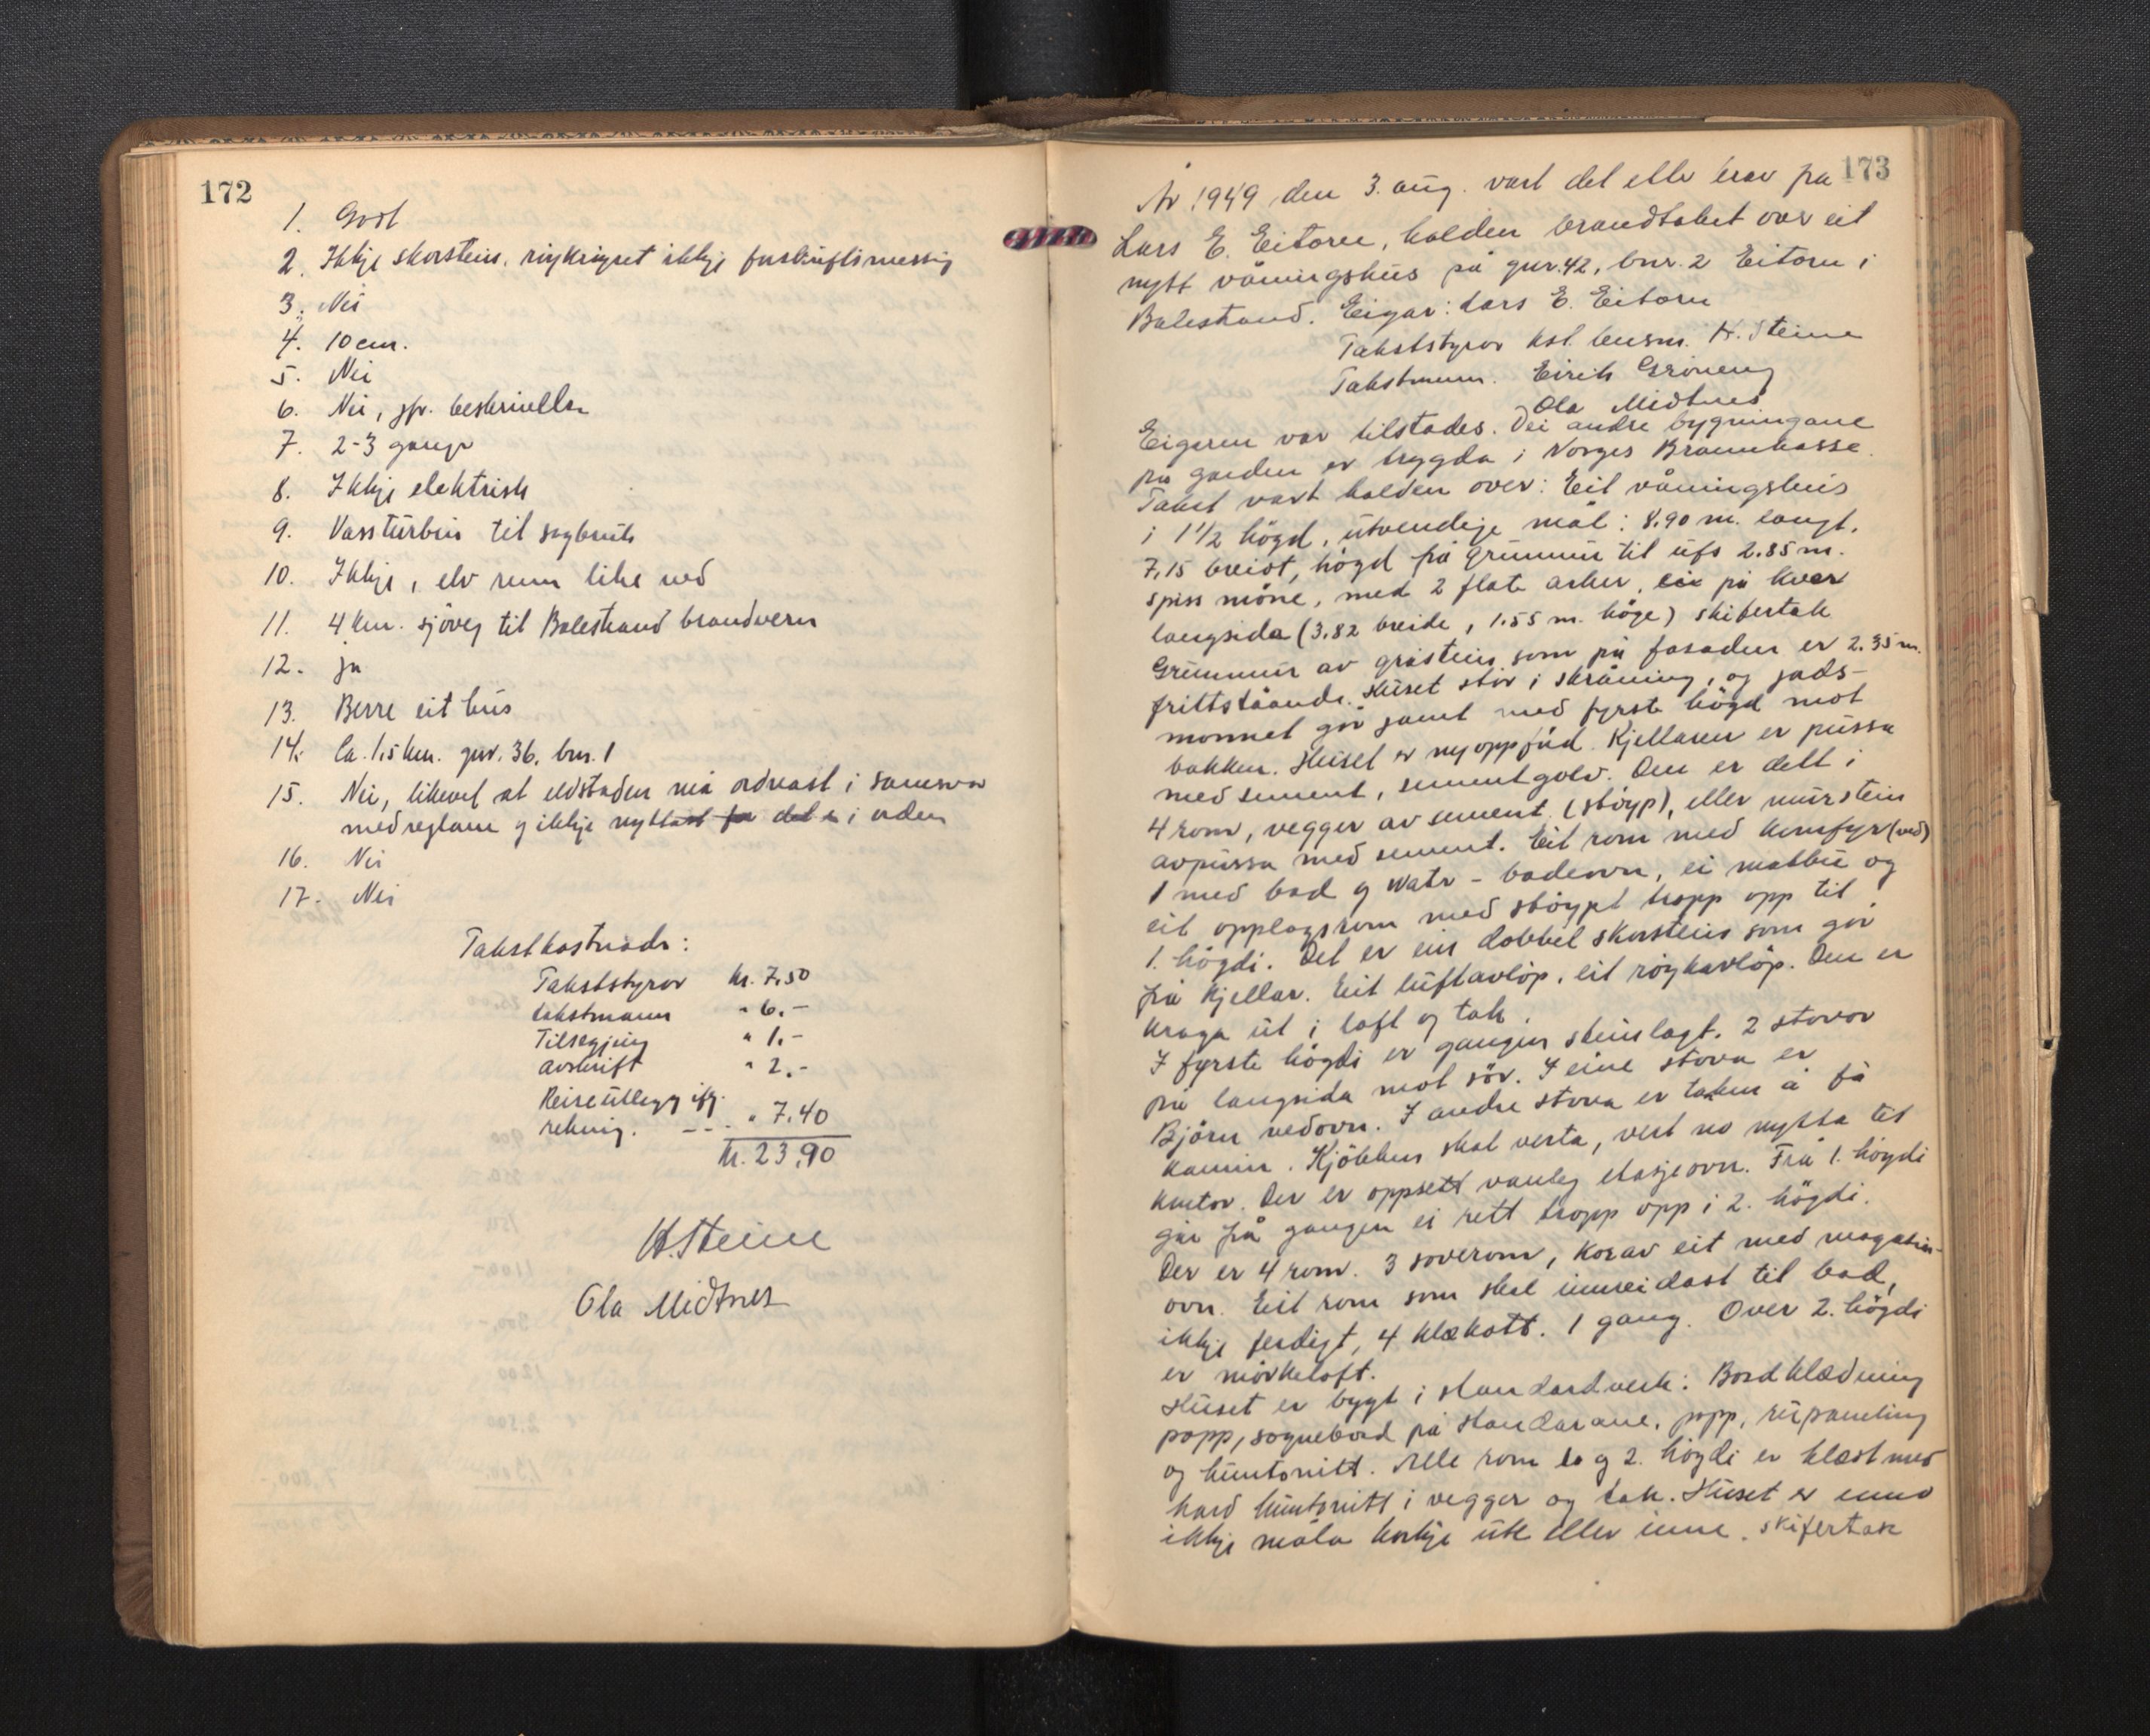 172
1. Godt
2. Ikkje skorstein, röykröyret ikkje forskriftsmessig
3. Nei
4. 10 cm.
5. Nei
6. Nei, jfr. beskrivelsen
7. 2-3 gange
8. Ikkje elektrisk
9. Vassturbin til sagbruk
10. Ikkje, elv renn like ved
11. 4 km. sjöveg til Balestrand brandvern
12. ja
13. Berre eit hus
14. Ca. 1,5 km. gnr. 36, bnr. 1
15. Nei, likevel at eldstaden må ordnast i samsvar
med reglane og ikkje nyttast för det er i orden
16. Nei
17. Nei
Takstkostnader:
Takststyror kr. 7,50
takstmann " 6.-
Tilsegjing " 1.-
avskrift " 2.-
Reiseutlegg ifg.
rekning. --- " 7.40
kr. 23,90
H. Steine
Ola Midtnes
173
År 1949 den 3. aug. vart det etter krav på
Lars E. Eitorn, halden brandtakst over eit
nytt våningshus på gnr. 42, bnr. 2 Eitorn i
Balestrand. Eigar: Lars E. Eitorn
Takststyror kst. lensm. H. Steine
Takstmenn. Eirik Gröneng
Ola Midtnes
Eigaren var tilstades. Dei andre bygningane
på garden er trygda i Norges Brannkasse.
Takst vart halden over: Eit våningshus
i 1 1/2 högd, utvendige mål: 8.90 m. langt,
7,15 breidt, högd frå grunnmur til ufs 2.85 m.
spiss möne, med 2 flate arker, ein på kvar
langside (3.82 breide, 1.55 m. höge) skifertak
Grunnmur av gråstein som på fasaden er 2.35 m.
frittståande. Huset står i skråning, og jads-
monnet går jamt med fyrste högd mot
bakken. Huset er ny oppfört. Kjellaren er pussa
med sement, sementgolv. Den er delt i
4 rom, vegger av sement (stöyp), eller murstein
avpussa med sement. Eit rom med komfyr (ved)
1 med bad og Wate - badeovn, ei matbu og
eit opplagsrom med stöypt tropp opp til
1. högdi. Det er ein dobbel skorstein som går
frå kjellar. Eit luftavlöp, eit röykavlöp. Den er
kraga ut i loft og tak.
I fyrste högdi er gangen steinlagt. 2 stovor
på langsida mot sör. I eine stova er
Björn vedovn. I andre stova er taken å få
kamin. Kjökken skal verta, vert no nytta til
kontor. Der er oppsett vanleg etasjeovn. Frå 1. högdi
går frå gangen ei rett tropp opp i 2. högdi.
Der er 4 rom. 3 soverom, korav eit med magasin-
ovn. Eit rom som skal innreidast til bad,
ikkje ferdigt, 4 klekott. 1 gang. Over 2. högdi
er mörkeloft.
Huset er bygt i standardverk: Bordklædning
papp, sagnebord på standarane, papp, rupaneling
og huntonitt. Alle rom 1 og 2. högdi er klædt med
hard huntonitt i vegger og tak. Huset er enno
ikkje måla korkje ute eller inne. skifertak